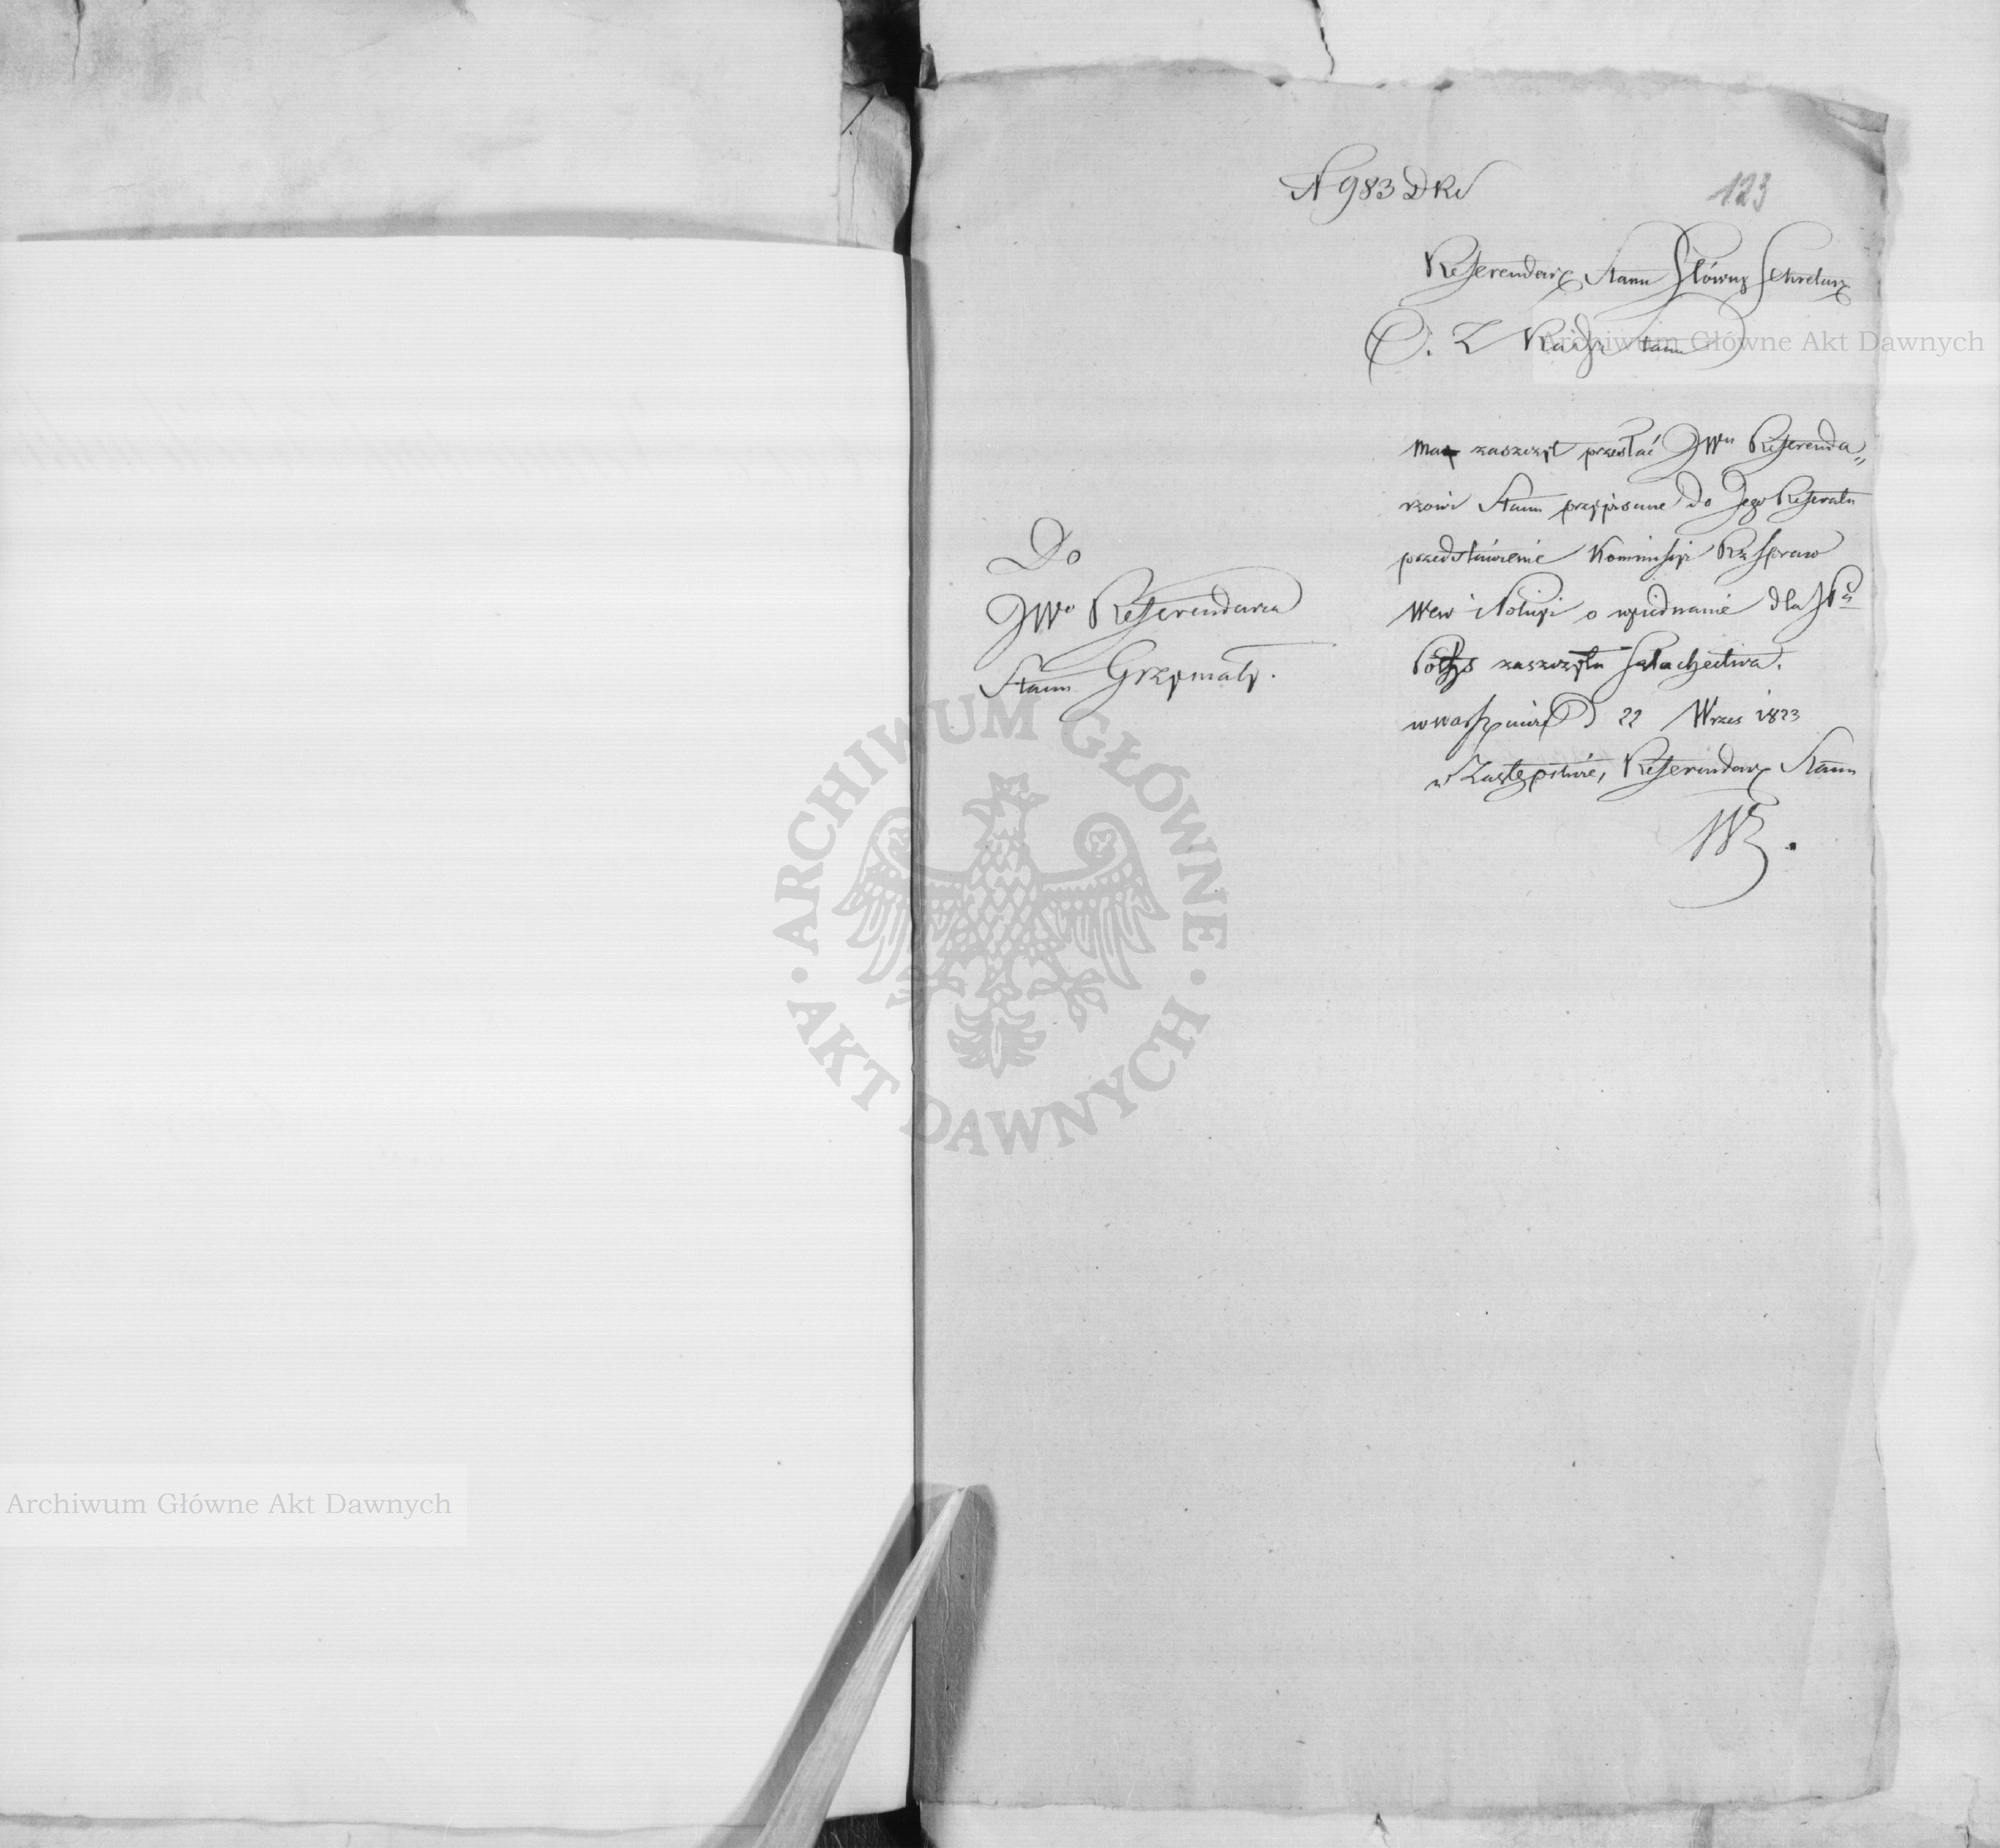 N 983 DRS
123
Referendarz Stanu Główny Sekretarz
Rady Stanu
Ma zaszczyt przesłać JWu Referenda„
rzowi Stanu przypisane do Jego Referatu
przedstawienie Kommissyi Rz Spraw
Wew i Policyi o wyiednanie dla JP
zaszczytu Szlachectwa.
w Warszawie D 22 Wrzes 1823
w Zastępstwie, Referendarz Stanu
Do
JWo Referendarza
Stanu Grzymały.
Archiwum Główne Akt Dawnych
· ARCHIWUM GŁÓWNE · AKT DAWNYCH
Archiwum Główne Akt Dawnych